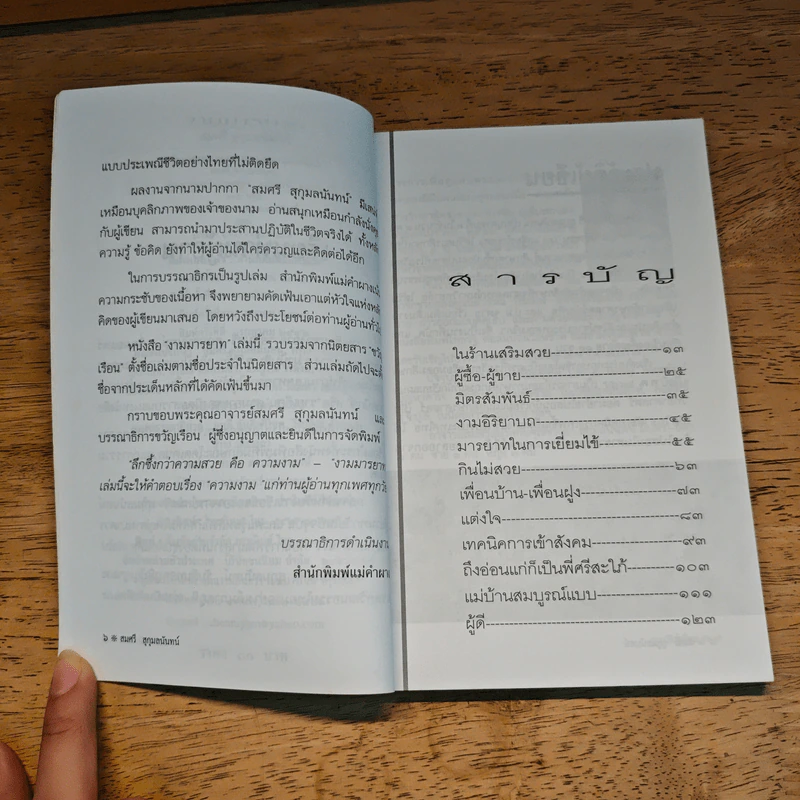 แบบประเพณีชีวิตอย่างไทยที่ไม่ติดยึด
ผลงานจากนามปากกา "สมศรี สุกุมลนันทน์"
เหมือนบุคลิกภาพของเจ้าของนาม อ่านสนุกเหมือนกำลังนั่ง
กับผู้เขียน สามารถนำมาประสานปฏิบัติในชีวิตจริงได้
ความรู้ ข้อคิด ยังทำให้ผู้อ่านได้ใคร่ครวญและคิดต่อได้อีก
ในการบรรณาธิกรเป็นรูปเล่ม สำนักพิมพ์แม่คำผาง
ความกระชับของเนื้อหา จึงพยายามคัดเฟ้นเอาแต่หัวใจแห่ง
คิดของผู้เขียนมาเสนอ โดยหวังถึงประโยชน์ต่อท่านผู้อ่าน
หนังสือ "งามมารยาท" เล่มนี้ รวบรวมจากนิตยสาร "ขวัญ
เรือน" ตั้งชื่อเล่มตามชื่อประจำในนิตยสาร ส่วนเล่มถัดไปจะ
ชื่อจากประเด็นหลักที่ได้คัดเฟ้นขึ้นมา
กราบขอบพระคุณอาจารย์สมศรี สุกุมลนันทน์
บรรณาธิการขวัญเรือน ผู้ซึ่งอนุญาตและยินดีในการจัดพิมพ์
"ลึกซึ้งกว่าความสวย คือ ความงาม" – "งามมารยาท
เล่มนี้จะให้คำตอบเรื่อง "ความงาม "แก่ท่านผู้อ่านทุกเพศทุกวัย
บรรณาธิการดำเนินงาน
สำนักพิมพ์แม่คำผาง
๖ ❋ สมศรี สุกุมลนันทน์
สารบัญ
ในร้านเสริมสวย---๑๓
ผู้ซื้อ-ผู้ขาย---๒๕
มิตรสัมพันธ์---๓๕
งามอิริยาบถ---๔๕
มารยาทในการเยี่ยมไข้---๕๕
กินไม่สวย---๖๓
เพื่อนบ้าน-เพื่อนฝูง---๗๓
แต่งใจ---๘๓
เทคนิคการเข้าสังคม---๙๓
ถึงอ่อนแก่ก็เป็นพี่ศรีสะใภ้---๑๐๓
แม่บ้านสมบูรณ์แบบ---๑๑๑
ผู้ดี---๑๒๓